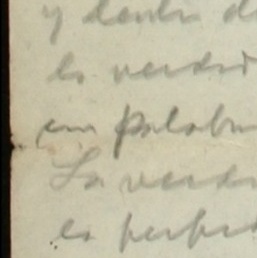 y dentro d
la verdad
en palabr
La verda
es perfec